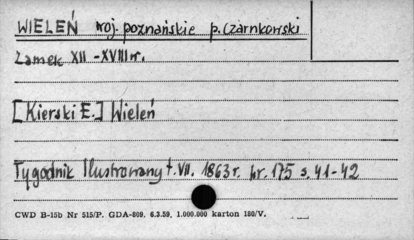 WIELEŃ woj. poznańskie p. Czarnkowski
Zamek XII - XVIII w.
[Kierski E.] Wieleń
Tygodnik Ilustrowany t. VII. 1863 r. nr. 175 s. 41-42
CWD B-15b Nr 515/P. GDA-809. 6.3.59. 1.000.000 karton 180/V.